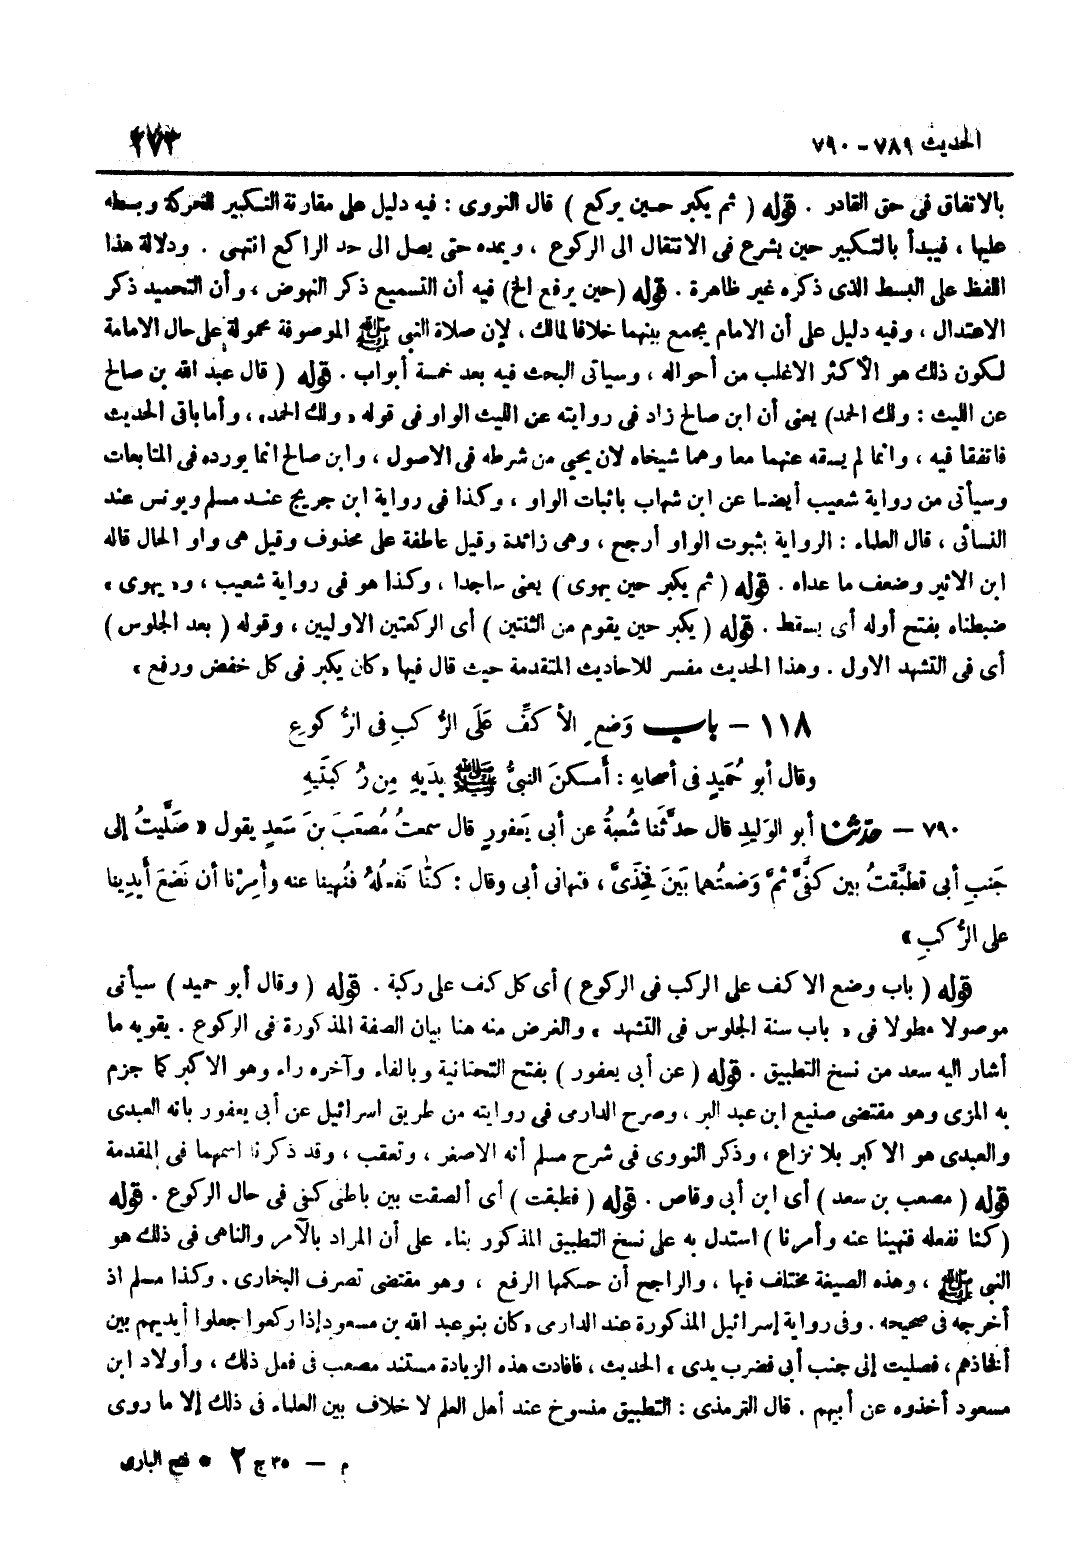 الحديث ٧٨٩ - ٧٩٠
٢٧٣
بالاتفاق فى حق القادر . قوله ( ثم يكبر حين يركع ) قال النووى : فيه دليل على مقارنة التكبير للحركة وبسطه
عليها ، فيبدأ بالتكبير حين يشرع فى الانتقال الى الركوع ، ويمده حتى يصل الى حد الراكع انتهى . ودلالة هذا
اللفظ على البسط الذى ذكره غير ظاهرة . قوله (حين يرفع الخ) فيه أن التسميع ذكر النهوض ، وأن التحميد ذكر
الاعتدال ، وفيه دليل على أن الامام يجمع بينهما خلافا لمالك ، لإن صلاة النبى ﷺ الموصوفة محمولة على حال الامامة
لكون ذلك هو الأكثر الاغلب من أحواله ، وسيأتى البحث فيه بعد خمسة أبواب . قوله ( قال عبد الله بن صالح
عن الليث : ولك الحمد) يعنى أن ابن صالح زاد فى روايته عن الليث الواو فى قوله « ولك الحمد» ، وأما باقى الحديث
فاتفقا فيه ، وانما لم يسقه عنهما معا وهما شيخاه لان يحيى من شرطه فى الاصول ، وابن صالح انما يورده فى المتابعات
وسيأتى من رواية شعيب أيضا عن ابن شهاب باثبات الواو ، وكذا فى رواية ابن جريج عند مسلم ويونس عند
النسائى ، قال العلماء : الرواية بثبوت الواو أرجح ، وهى زائدة وقيل عاطفة على محذوف وقيل هى واو الحال قاله
ابن الاثير وضعف ما عداه . قوله ( ثم يكبر حين يهوى ) يعنى ساجدا ، وكذا هو فى رواية شعيب ، و« يهوى »
ضبطناه بفتح أوله أى يسقط . قوله ( يكبر حين يقوم من الثنتين ) أى الركعتين الاوليين ، وقوله ( بعد الجلوس )
أى فى التشهد الاول . وهذا الحديث مفسر للاحاديث المتقدمة حيث قال فيها «كان يكبر فى كل خفض ورفع »
١١٨ - باب وَضعِ الأكفِّ عَلَى الرُّكبِ فى الرُّكوعِ
وقال أبو حُمَيدٍ فى أصحابهِ : أَمسكنَ النبىُّ ﷺ يدَيهِ مِن رُكبتَيهِ
٧٩٠ - حدثنا أبو الوَليدِ قال حدَّثَنا شُعبةُ عن أبى يَعفورٍ قال سمعتُ مُصعَبَ بنَ سَعدٍ يقول « صَلَّيتُ إلى
جَنبِ أبى فطبَّقتُ بين كفَّىَّ ثمَّ وَضعتُهما بَينَ فخِذَىَّ ، فنهانى أبى وقال : كنّا نَفعلُهُ فنُهينا عنه وأُمِرْنا أن نَضعَ أَيدِينا
على الرُّكبِ »
قوله ( باب وضع الاكف على الركب فى الركوع ) أى كل كف على ركبة . قوله ( وقال أبو حميد ) سيأتى
موصولا مطولا فى « باب سنة الجلوس فى التشهد » والغرض منه هنا بيان الصفة المذكورة فى الركوع . يقويه ما
أشار اليه سعد من نسخ التطبيق . قوله ( عن أبى يعفور ) بفتح التحتانية وبالفاء وآخره راء وهو الاكبر كما جزم
به المزى وهو مقتضى صنيع ابن عبد البر ، وصرح الدارمى فى روايته من طريق اسرائيل عن أبى يعفور بانه العبدى
والعبدى هو الاكبر بلا نزاع ، وذكر النووى فى شرح مسلم أنه الاصغر ، وتعقب ، وقد ذكرنا اسمهما فى المقدمة
قوله ( مصعب بن سعد ) أى ابن أبى وقاص . قوله ( فطبقت ) أى ألصقت بين باطنى كفى فى حال الركوع . قوله
(كنا نفعله فنهينا عنه وأمرنا ) استدل به على نسخ التطبيق المذكور بناء على أن المراد بالآمر والناهى فى ذلك هو
النبى ﷺ ، وهذه الصيغة مختلف فيها ، والراجح أن حكمها الرفع ، وهو مقتضى تصرف البخارى . وكذا مسلم اذ
أخرجه فى صحيحه . وفى رواية إسرائيل المذكورة عند الدارمى «كان بنو عبد الله بن مسعود إذا ركعوا جعلوا أيديهم بين
أفخاذهم ، فصليت إلى جنب أبى فضرب يدى » الحديث ، فافادت هذه الزيادة مستند مصعب فى فعل ذلك ، وأولاد ابن
مسعود أخذوه عن أبيهم . قال الترمذى : التطبيق منسوخ عند أهل العلم لا خلاف بين العلماء فى ذلك إلا ما روى
م - ٣٥ ج ٢ * فتح البارى